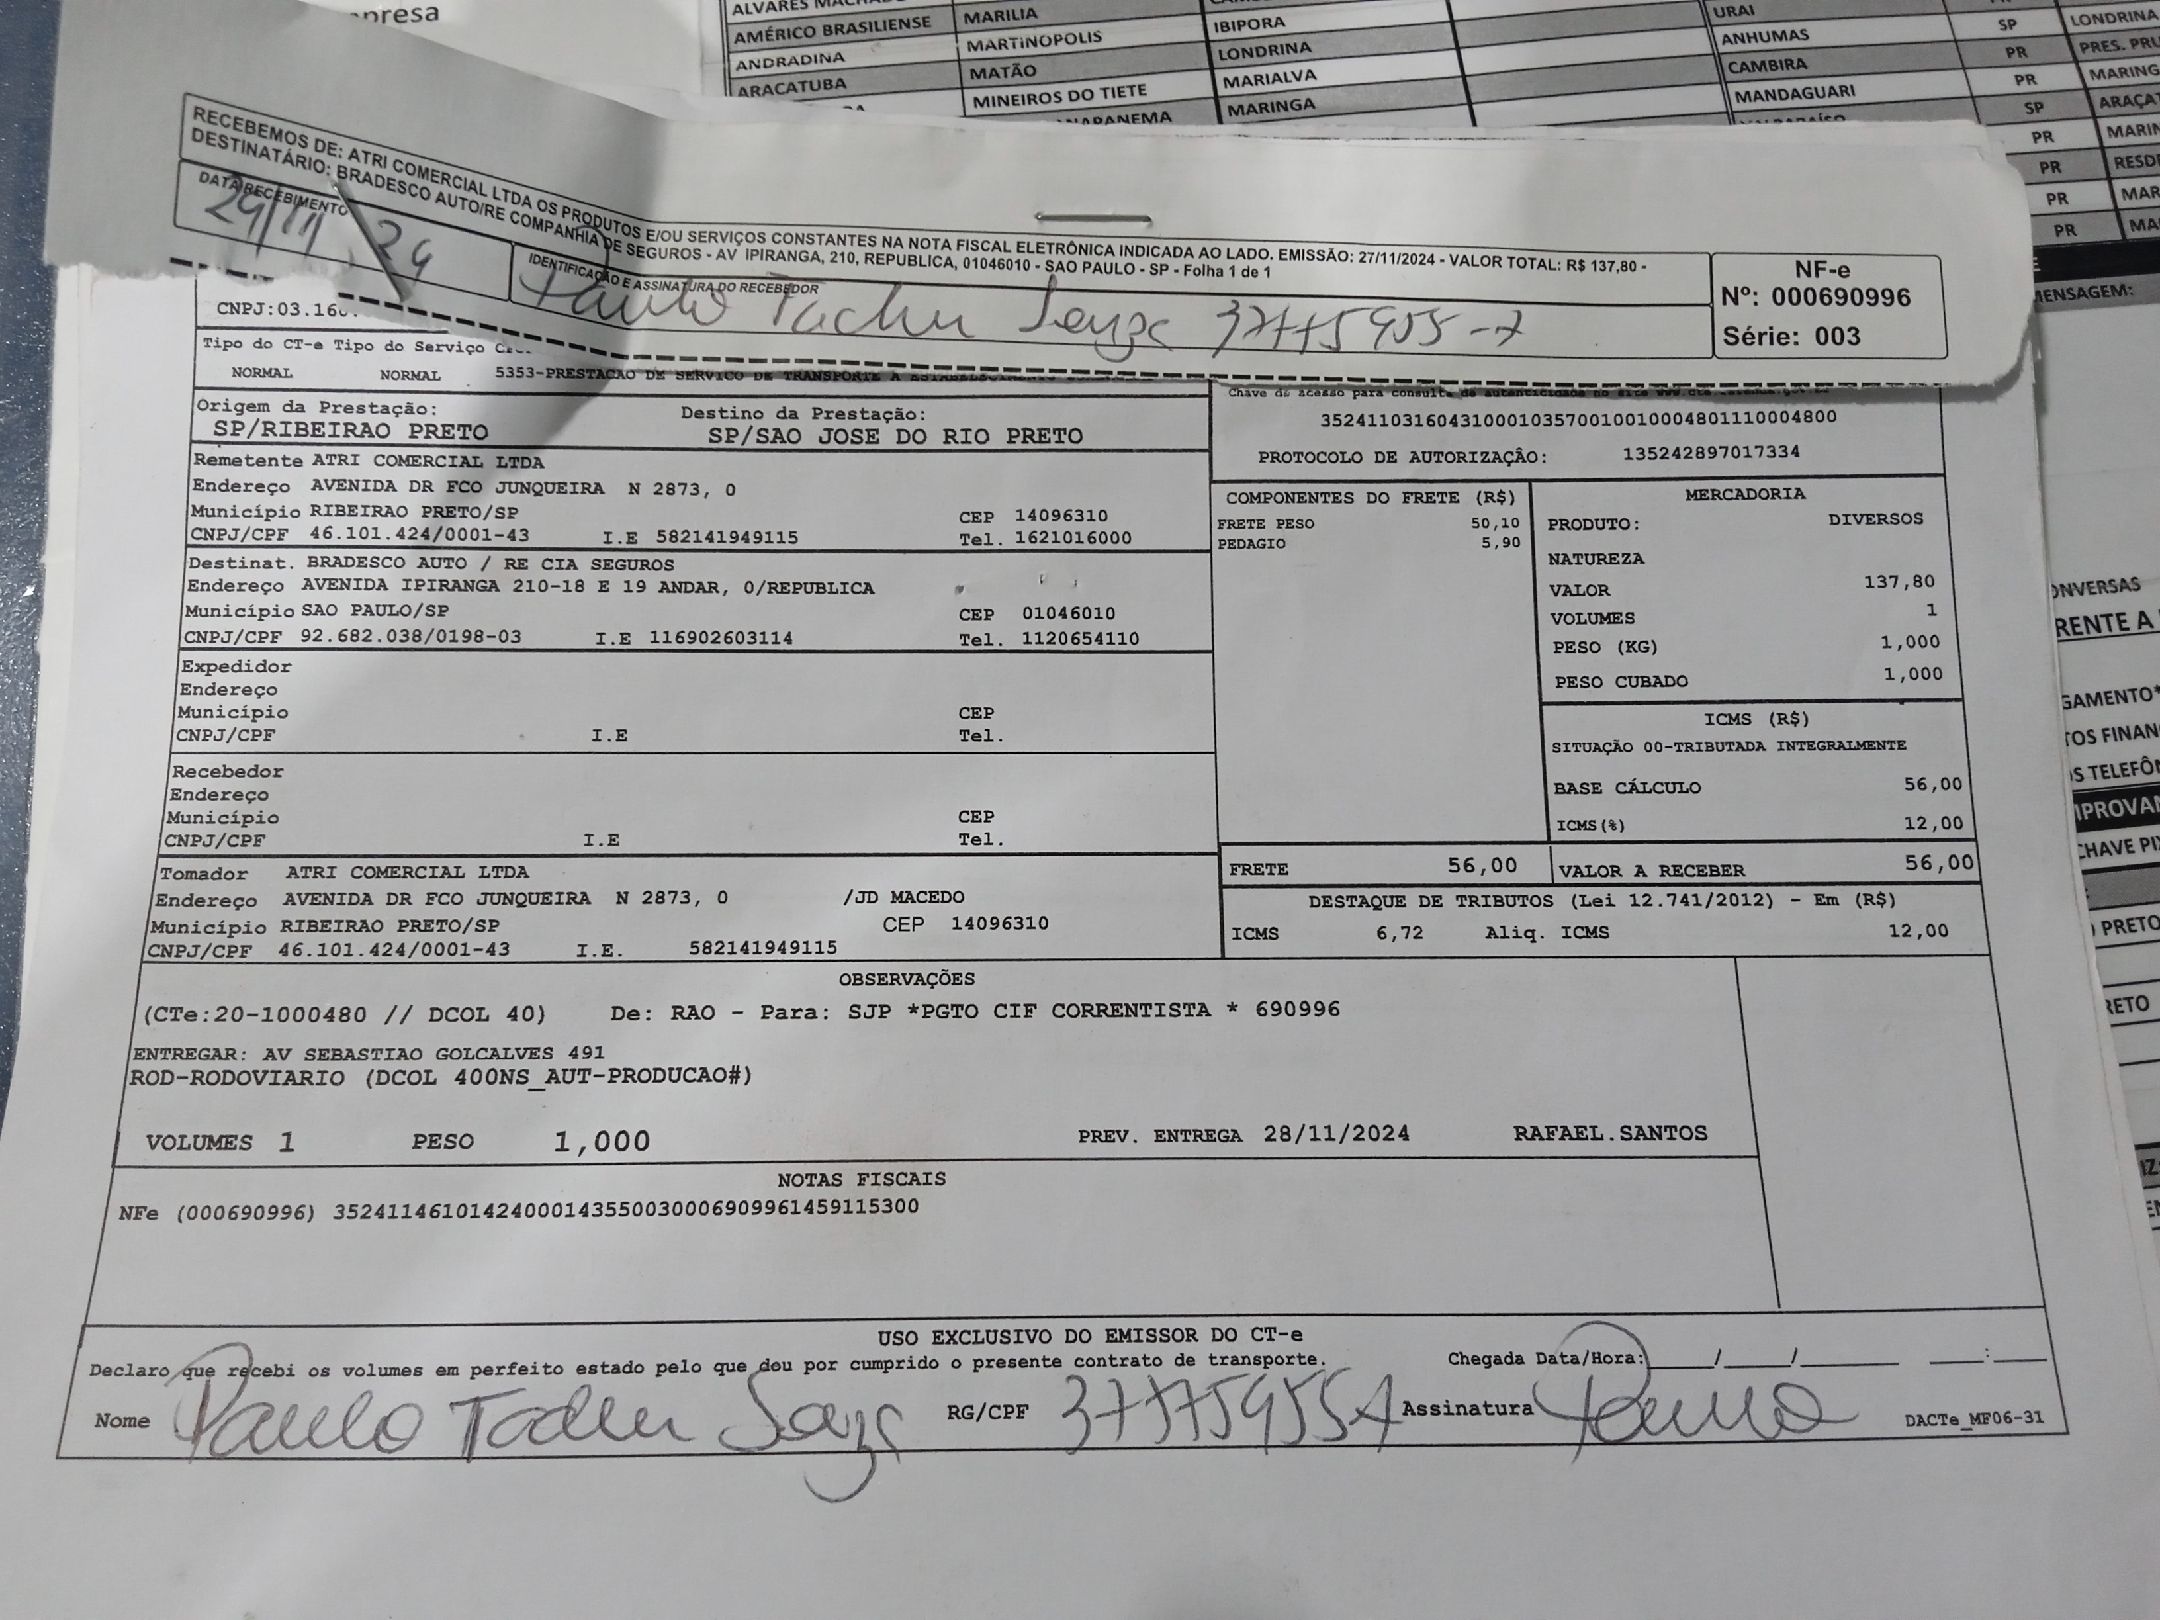 presa
AMÉRICO BRASILIENSE
ANDRADINA
ARAÇATUBA
MARILIA
MARTINOPOLIS
MATÃO
MINEIROS DO TIETE
IBIPORA
LONDRINA
MARIALVA
MARINGA
URAI
ANHUMAS
CAMBIRA
MANDAGUARI
SP
PR
PR
SP
PR
PR
PR
PR
LONDRINA
PRES. PRU
MARING
ARAÇAT
MARIN
RESD
MAR
MA
RECEBEMOS DE: ATRI COMERCIAL LTDA OS PRODUTOS E/OU SERVIÇOS CONSTANTES NA NOTA FISCAL ELETRÔNICA INDICADA AO LADO. EMISSÃO: 27/11/2024 - VALOR TOTAL: R$ 137,80 -
DESTINATÁRIO: BRADESCO AUTO/RE COMPANHIA DE SEGUROS - AV IPIRANGA, 210, REPUBLICA, 01046010 - SAO PAULO - SP - Folha 1 de 1
DATA RECEBIMENTO
29/11 24
IDENTIFICAÇÃO E ASSINATURA DO RECEBEDOR
Paulo Tadeu Souza
NF-e
Nº: 000690996
Série: 003
MENSAGEM:
CNPJ:03.160.
Tipo do CT-e Tipo do Serviço
NORMAL NORMAL 5353-PRESTACAO DE SERVICO DE TRANSPORTE A
Chave de acesso para consulta de autenticidade no site
35241103160431000103570010010004801110004800
PROTOCOLO DE AUTORIZAÇÃO: 135242897017334
Origem da Prestação: Destino da Prestação:
SP/RIBEIRAO PRETO SP/SAO JOSE DO RIO PRETO
Remetente ATRI COMERCIAL LTDA
Endereço AVENIDA DR FCO JUNQUEIRA N 2873, 0
Município RIBEIRAO PRETO/SP CEP 14096310
CNPJ/CPF 46.101.424/0001-43 I.E 582141949115 Tel. 1621016000
Destinat. BRADESCO AUTO / RE CIA SEGUROS
Endereço AVENIDA IPIRANGA 210-18 E 19 ANDAR, 0/REPUBLICA
Município SAO PAULO/SP CEP 01046010
CNPJ/CPF 92.682.038/0198-03 I.E 116902603114 Tel. 1120654110
Expedidor
Endereço
Município CEP
CNPJ/CPF I.E Tel.
Recebedor
Endereço
Município CEP
CNPJ/CPF I.E Tel.
Tomador ATRI COMERCIAL LTDA
Endereço AVENIDA DR FCO JUNQUEIRA N 2873, 0 /JD MACEDO
Município RIBEIRAO PRETO/SP CEP 14096310
CNPJ/CPF 46.101.424/0001-43 I.E. 582141949115
COMPONENTES DO FRETE (R$)
FRETE PESO 50,10
PEDAGIO 5,90
MERCADORIA
PRODUTO: DIVERSOS
NATUREZA
VALOR 137,80
VOLUMES 1
PESO (KG) 1,000
PESO CUBADO 1,000
ICMS (R$)
SITUAÇÃO 00-TRIBUTADA INTEGRALMENTE
BASE CÁLCULO 56,00
ICMS(%) 12,00
FRETE 56,00 VALOR A RECEBER 56,00
DESTAQUE DE TRIBUTOS (Lei 12.741/2012) - Em (R$)
ICMS 6,72 Aliq. ICMS 12,00
OBSERVAÇÕES
(CTe:20-1000480 // DCOL 40) De: RAO - Para: SJP *PGTO CIF CORRENTISTA * 690996
ENTREGAR: AV SEBASTIAO GOLCALVES 491
ROD-RODOVIARIO (DCOL 400NS_AUT-PRODUCAO#)
VOLUMES 1 PESO 1,000 PREV. ENTREGA 28/11/2024 RAFAEL.SANTOS
NOTAS FISCAIS
NFe (000690996) 35241146101424000143550030006909961459115300
USO EXCLUSIVO DO EMISSOR DO CT-e
Declaro que recebi os volumes em perfeito estado pelo que dou por cumprido o presente contrato de transporte. Chegada Data/Hora: / / :
Nome Paulo Tadeu Souza RG/CPF Assinatura Paulo DACTe_MF06-31
ONVERSAS
RENTE A
GAMENTO*
TOS FINAN
S TELEFÔN
MPROVAN
CHAVE PI
PRETO
RETO